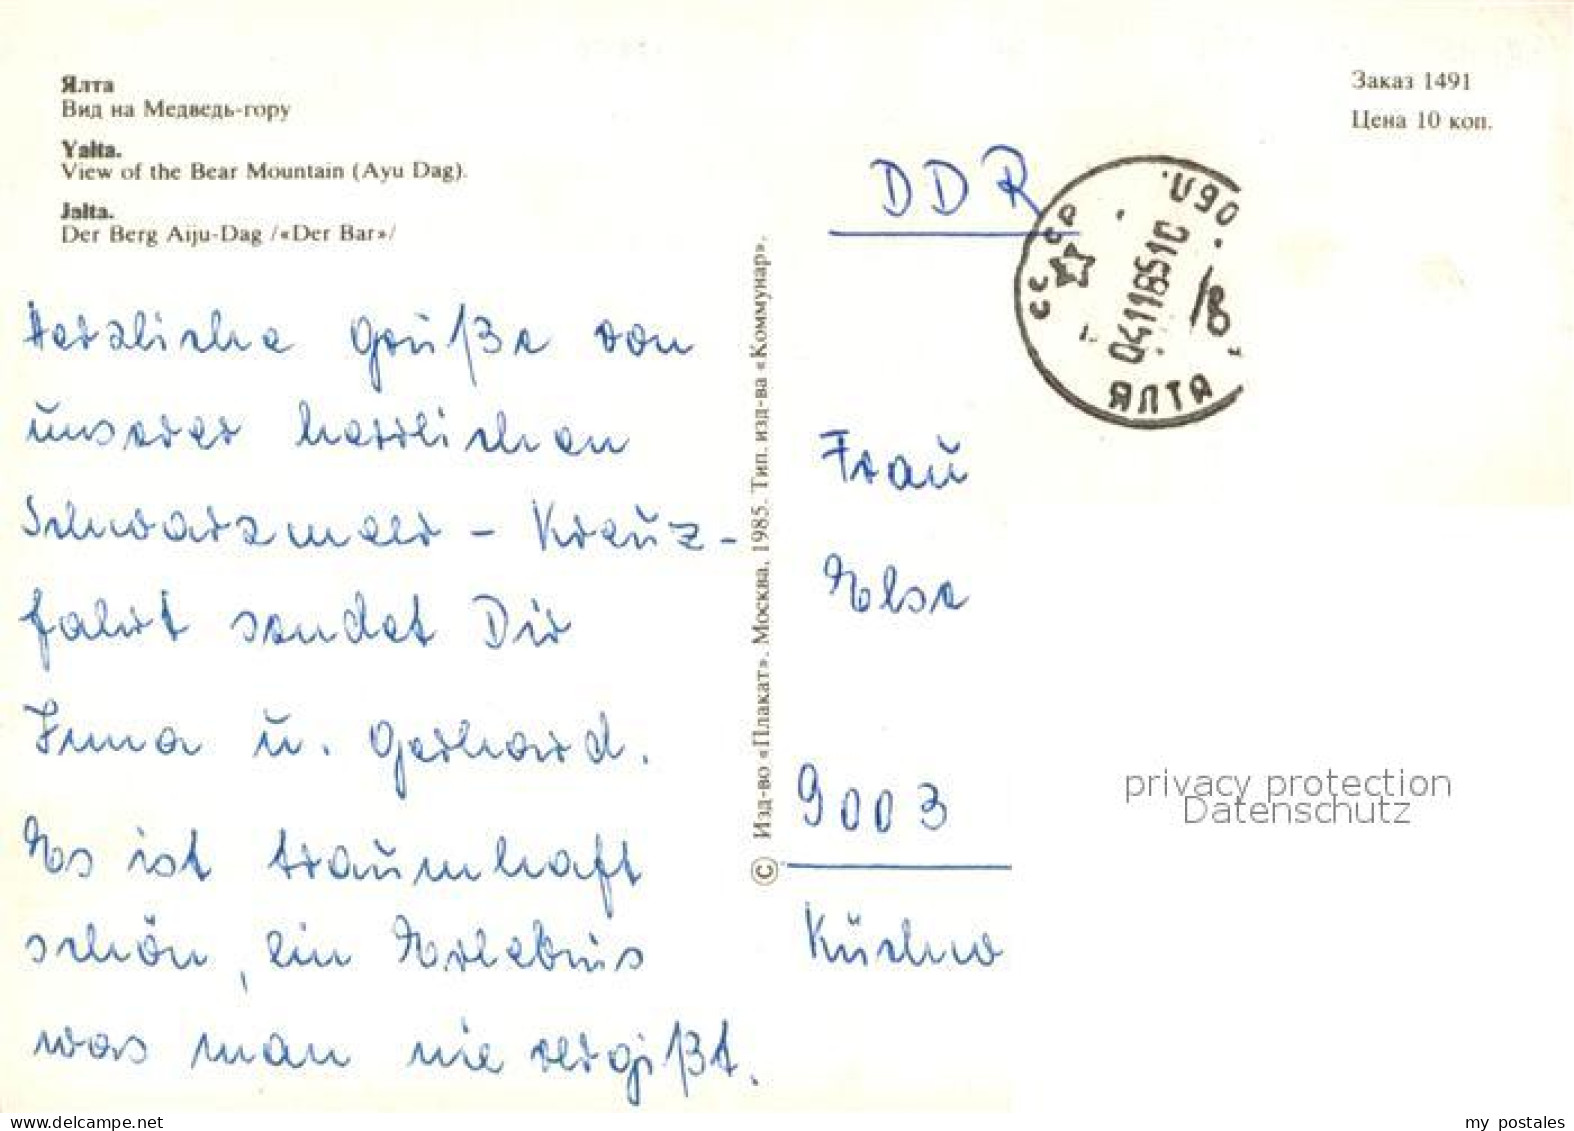 Ялта
Вид на Медведь-гору
Yalta.
View of the Bear Mountain (Ayu Dag).
Jalta.
Der Berg Aiju-Dag /«Der Bar»/
Заказ 1491
Цена 10 коп.
DDR
СССР
ЯЛТА
Herzliche Grüße von
unserer herrlichen
Schwarzmeer - Kreuz-
fahrt sendet Dir
Irma u. Gerhard.
Es ist traumhaft
schön, ein Erlebnis
was man nie vergißt.
© Изд-во «Плакат». Москва. 1985. Тип. изд-ва «Коммунар».
Frau
Else
9003
privacy protection
Datenschutz
my postales